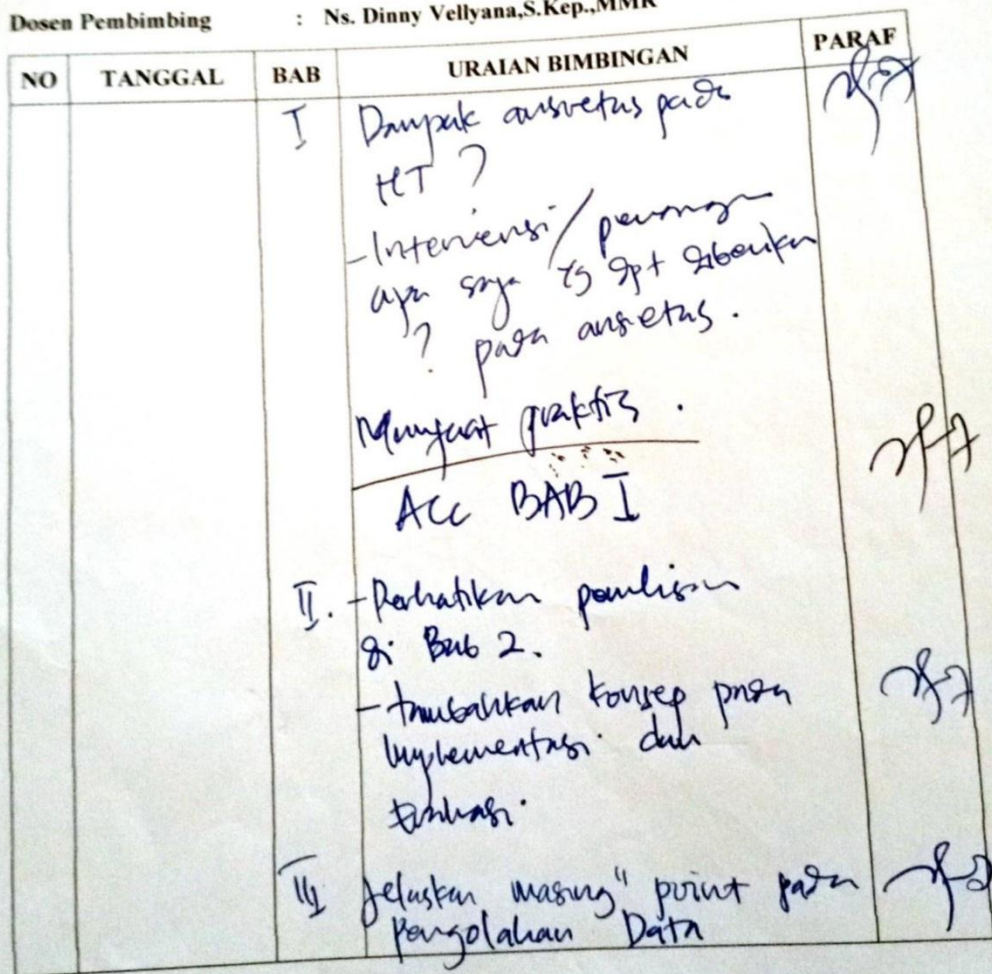 Dosen Pembimbing : Ns. Dinny Vellyana,S.Kep.,MMR
NO TANGGAL BAB URAIAN BIMBINGAN PARAF
I Dampak ansietas pada
HT ?
- Intervensi /
apa saja yg dpt diberikan
? pada ansietas.
Manfaat praktis.
ACC BAB I
II. - Perhatikan penulisan
di Bab 2.
- tambahkan konsep pada
Implementasi dan
Evaluasi.
III Jelaskan masing" point pada
Pengolahan Data